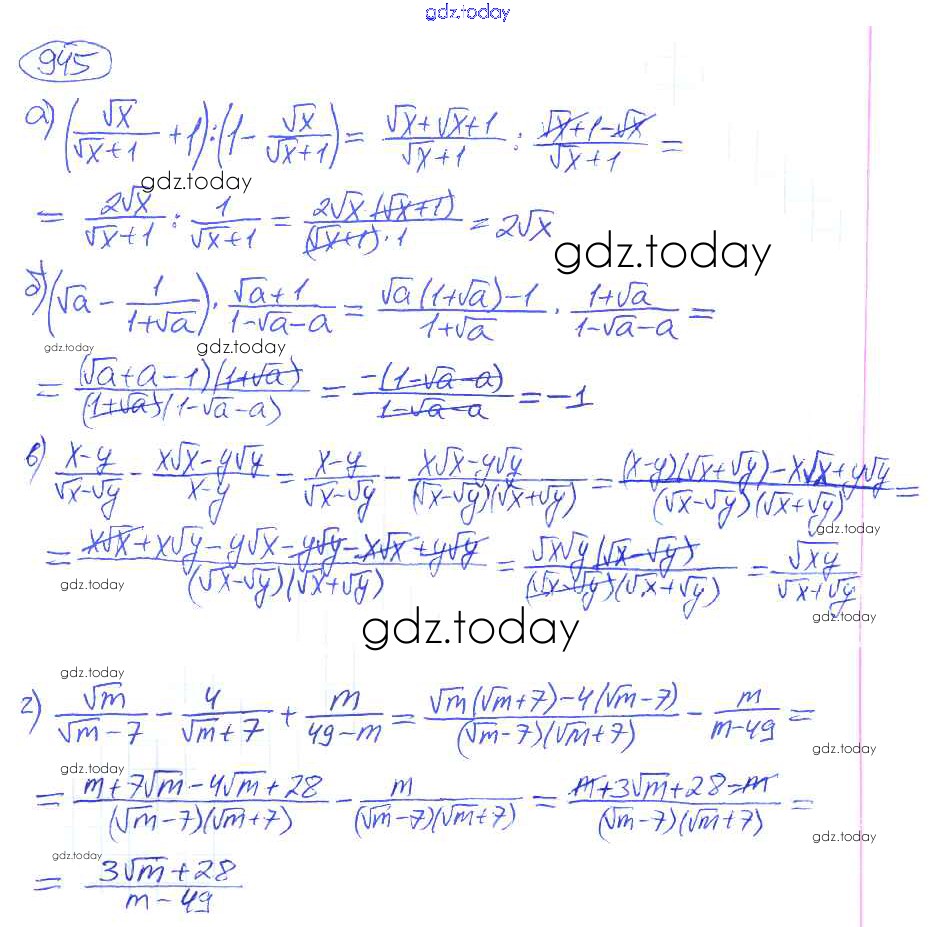 gdz.today
945
а) (√x/(√x+1) + 1) : (1 - √x/(√x+1)) = (√x+√x+1)/(√x+1) : (√x+1-√x)/(√x+1) =
= 2√x/(√x+1) : 1/(√x+1) = 2√x(√x+1)/((√x+1)·1) = 2√x
gdz.today
gdz.today
б) (√a - 1/(1+√a)) · (√a+1)/(1-√a-a) = (√a(1+√a)-1)/(1+√a) · (1+√a)/(1-√a-a) =
gdz.today gdz.today
= (√a+a-1)(1+√a)/((1+√a)(1-√a-a)) = -(1-√a-a)/(1-√a-a) = -1
в) (x-y)/(√x-√y) - (x√x-y√y)/(x-y) = (x-y)/(√x-√y) - (x√x-y√y)/((√x-√y)(√x+√y)) = ((x-y)(√x+√y)-x√x+y√y)/((√x-√y)(√x+√y)) =
gdz.today
= (x√x+x√y-y√x-y√y-x√x+y√y)/((√x-√y)(√x+√y)) = √x√y(√x-√y)/((√x-√y)(√x+√y)) = √xy/(√x+√y)
gdz.today
gdz.today
gdz.today
gdz.today
г) √m/(√m-7) - 4/(√m+7) + m/(49-m) = (√m(√m+7)-4(√m-7))/((√m-7)(√m+7)) - m/(m-49) =
gdz.today
gdz.today
= (m+7√m-4√m+28)/((√m-7)(√m+7)) - m/((√m-7)(√m+7)) = (m+3√m+28-m)/((√m-7)(√m+7)) =
gdz.today
gdz.today
= (3√m+28)/(m-49)